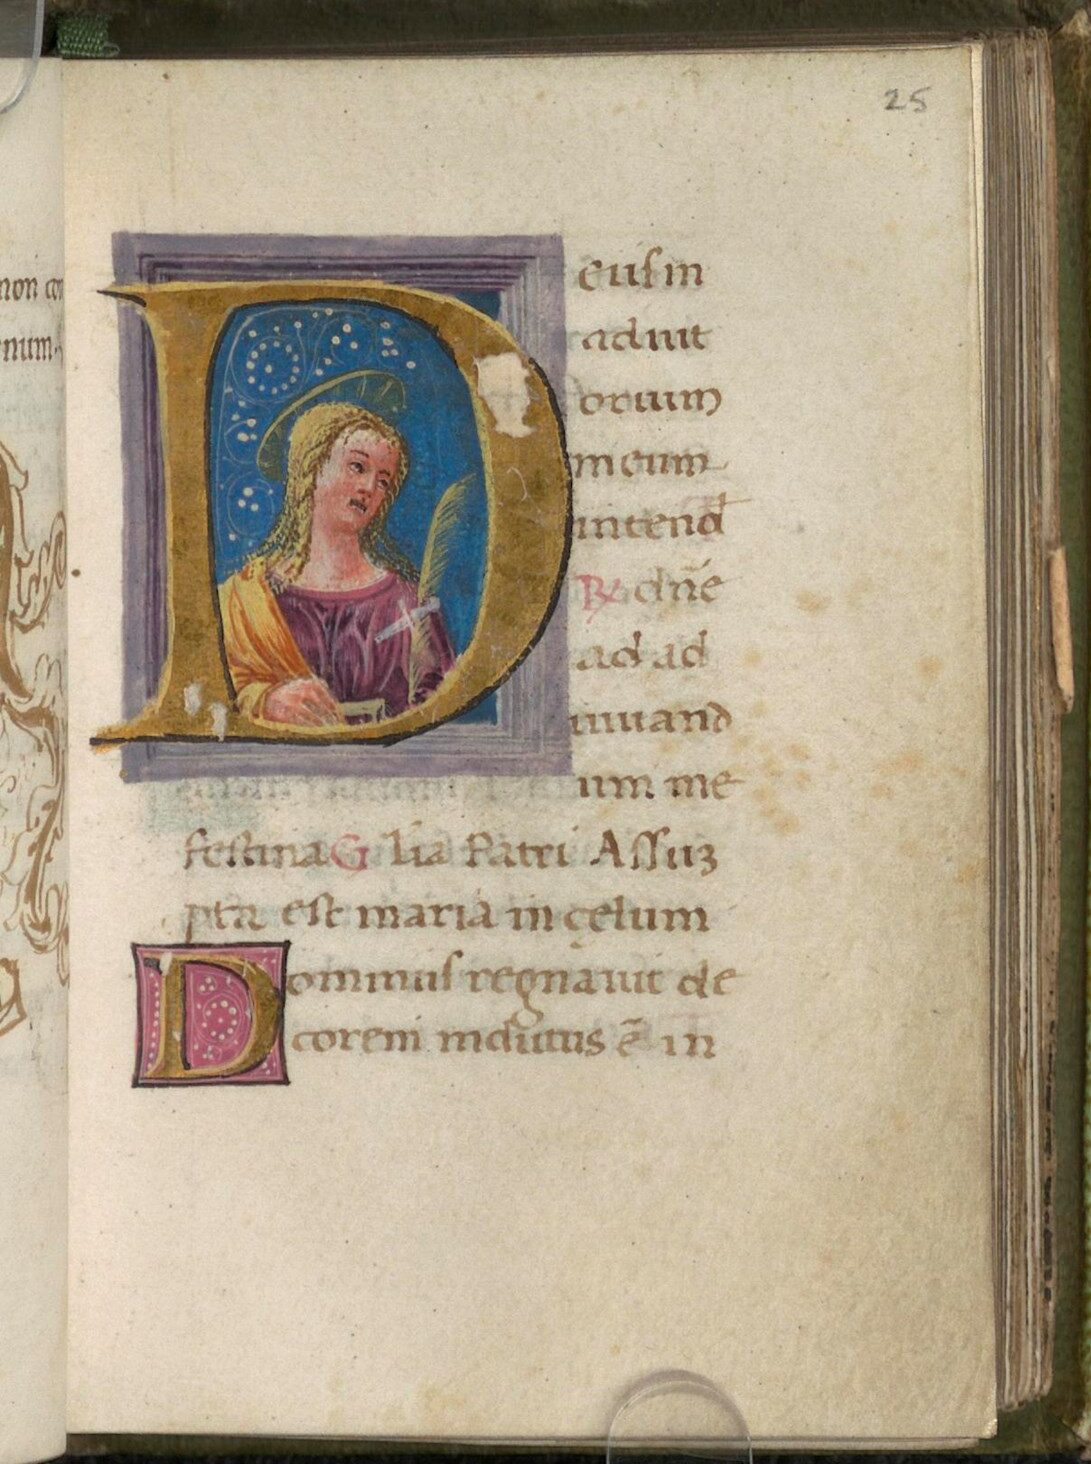 25
non co
num
Deus in
adiut
orium
meum
intend
℟ dñe
ad ad
iuuand
um me
festina Glia Patri Assuʒ
pta est maria in çelum
Dominus regnauit de
corem indutus ẽ in